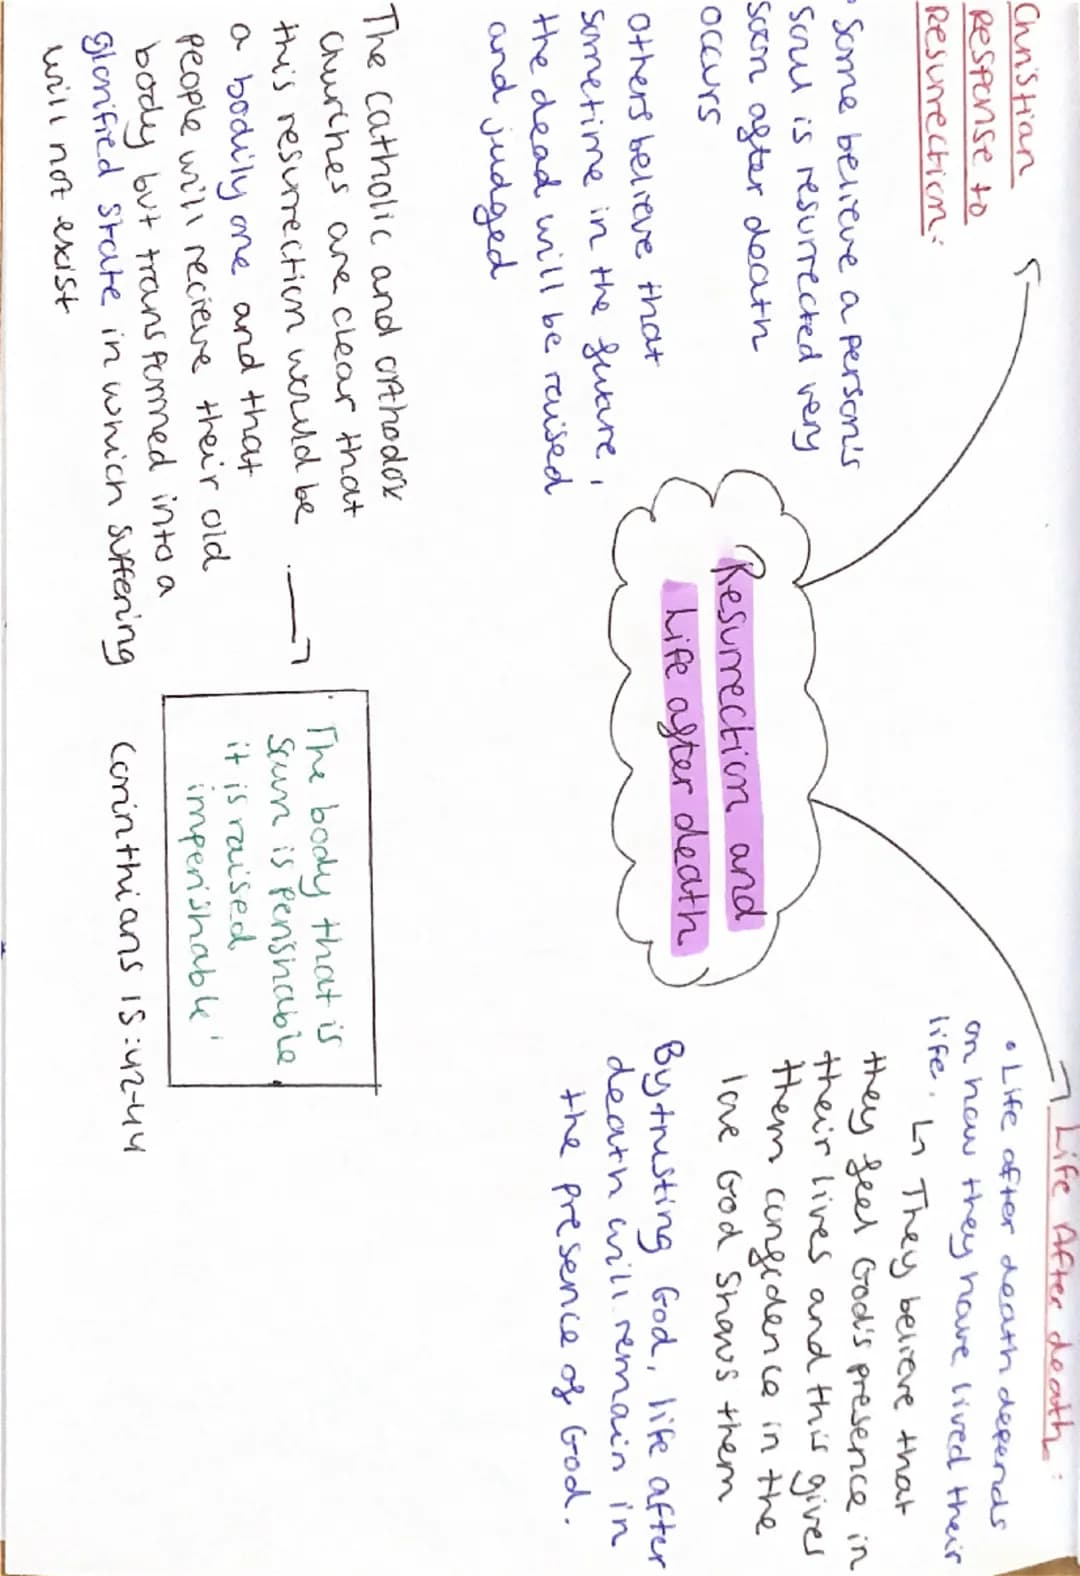 Resurrection and
Life after death
Christian
Response to
Resurrection:
• Some believe a person's
soul is resurrected very
soon after death
occurs
others believe that
sometime in the future,
the dead will be raised
and judged
The Catholic and orthodox
churches are clear that
this resurrection would be
a bodily one and that
people will recieve their old
body but transformed into a
glorified state in which suffering
will not exist
'The body that is
sown is perishable
it is raised
imperishable'
Corinthians 15:42-44
Life After death:
• Life after death depends
on how they have lived their
life. ↳ They believe that
they feel God's presence in
their lives and this gives
them confidence in the
love God shows them
By trusting God, life after
death will remain in
the presence of God.